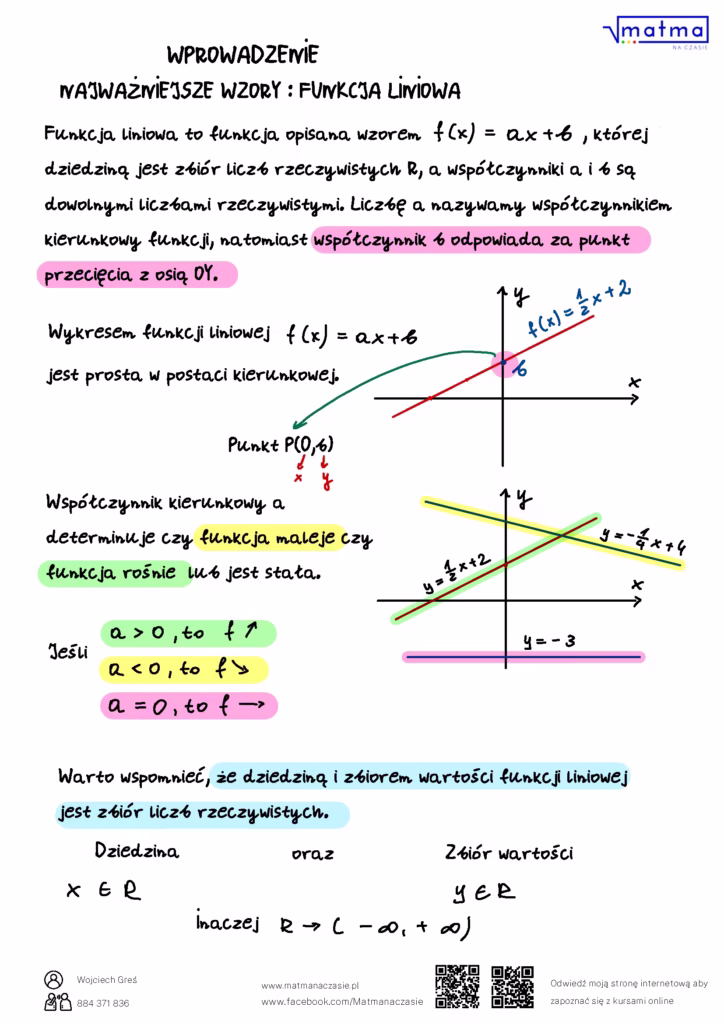 matma
NA CZASIE
WPROWADZENIE
NAJWAŻNIEJSZE WZORY : FUNKCJA LINIOWA
Funkcja liniowa to funkcja opisana wzorem f(x) = ax+b , której
dziedziną jest zbiór liczb rzeczywistych R, a współczynniki a i b są
dowolnymi liczbami rzeczywistymi. Liczbę a nazywamy współczynnikiem
kierunkowy funkcji, natomiast współczynnik b odpowiada za punkt
przecięcia z osią OY.
Wykresem funkcji liniowej f(x) = ax+b
jest prosta w postaci kierunkowej.
y
f(x) = 1/2 x + 2
b
x
Punkt P(0,b)
x y
Współczynnik kierunkowy a
determinuje czy funkcja maleje czy
funkcja rośnie lub jest stała.
y
y = 1/2 x + 2
y = - 1/4 x + 4
x
y = - 3
Jeśli
a > 0 , to f ↗
a < 0 , to f ↘
a = 0 , to f →
Warto wspomnieć, że dziedziną i zbiorem wartości funkcji liniowej
jest zbiór liczb rzeczywistych.
Dziedzina oraz Zbiór wartości
x ∈ R y ∈ R
inaczej R → ( - ∞, + ∞)
Wojciech Greś
884 371 836
www.matmanaczasie.pl
www.facebook.com/Matmanaczasie
Odwiedź moją stronę internetową aby
zapoznać się z kursami online